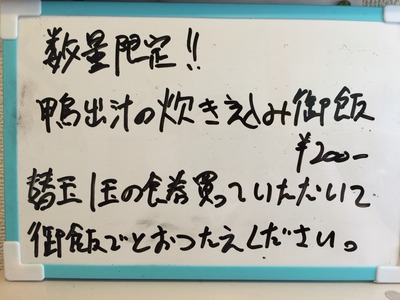 数量限定!!
鴨出汁の炊き込み御飯
¥200-
替玉1玉の食券買っていただいて
御飯でとおつたえください。